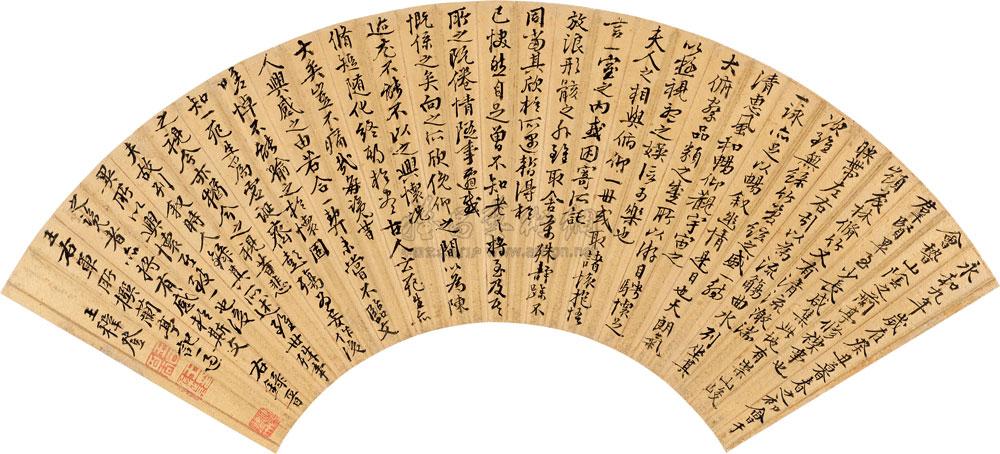 永和九年歲在癸丑暮春之初會于
會稽山陰之蘭亭其修禊事也
羣賢畢至少長咸集此地有崇山峻
領茂林脩竹又有清流激湍
映帶左右引以為流觴曲水列坐其
次雖無絲竹管絃之盛一觴
一詠亦足以暢敘幽情是日也天朗氣
清惠風和暢仰觀宇宙之
大俯察品類之盛所以游目騁懷足
以極視聽之娛信可樂也
夫人之相與俯仰一世或取諸懷抱悟
言一室之內或因寄所託
放浪形骸之外雖取舍萬殊靜躁不
同當其欣於所遇暫得於
己怏然自足曾不知老之將至及其
所之既倦情隨事遷感
慨係之矣向之所欣俛仰之間以為陳
迹尤不能不以之興懷況
脩短隨化終期於盡古人云死生亦
大矣豈不痛哉每攬昔
人興感之由若合一契未嘗不臨文
嗟悼不能喻之於懷固
知一死生為虛誕齊彭殤為妄作後
之視今亦猶今之視昔悲
夫故列敘時人錄其所述雖世殊事
異所以興懷其致一也後
之覽者亦將有感於斯文右錄晉
王右軍所撰蘭亭記
王穉登